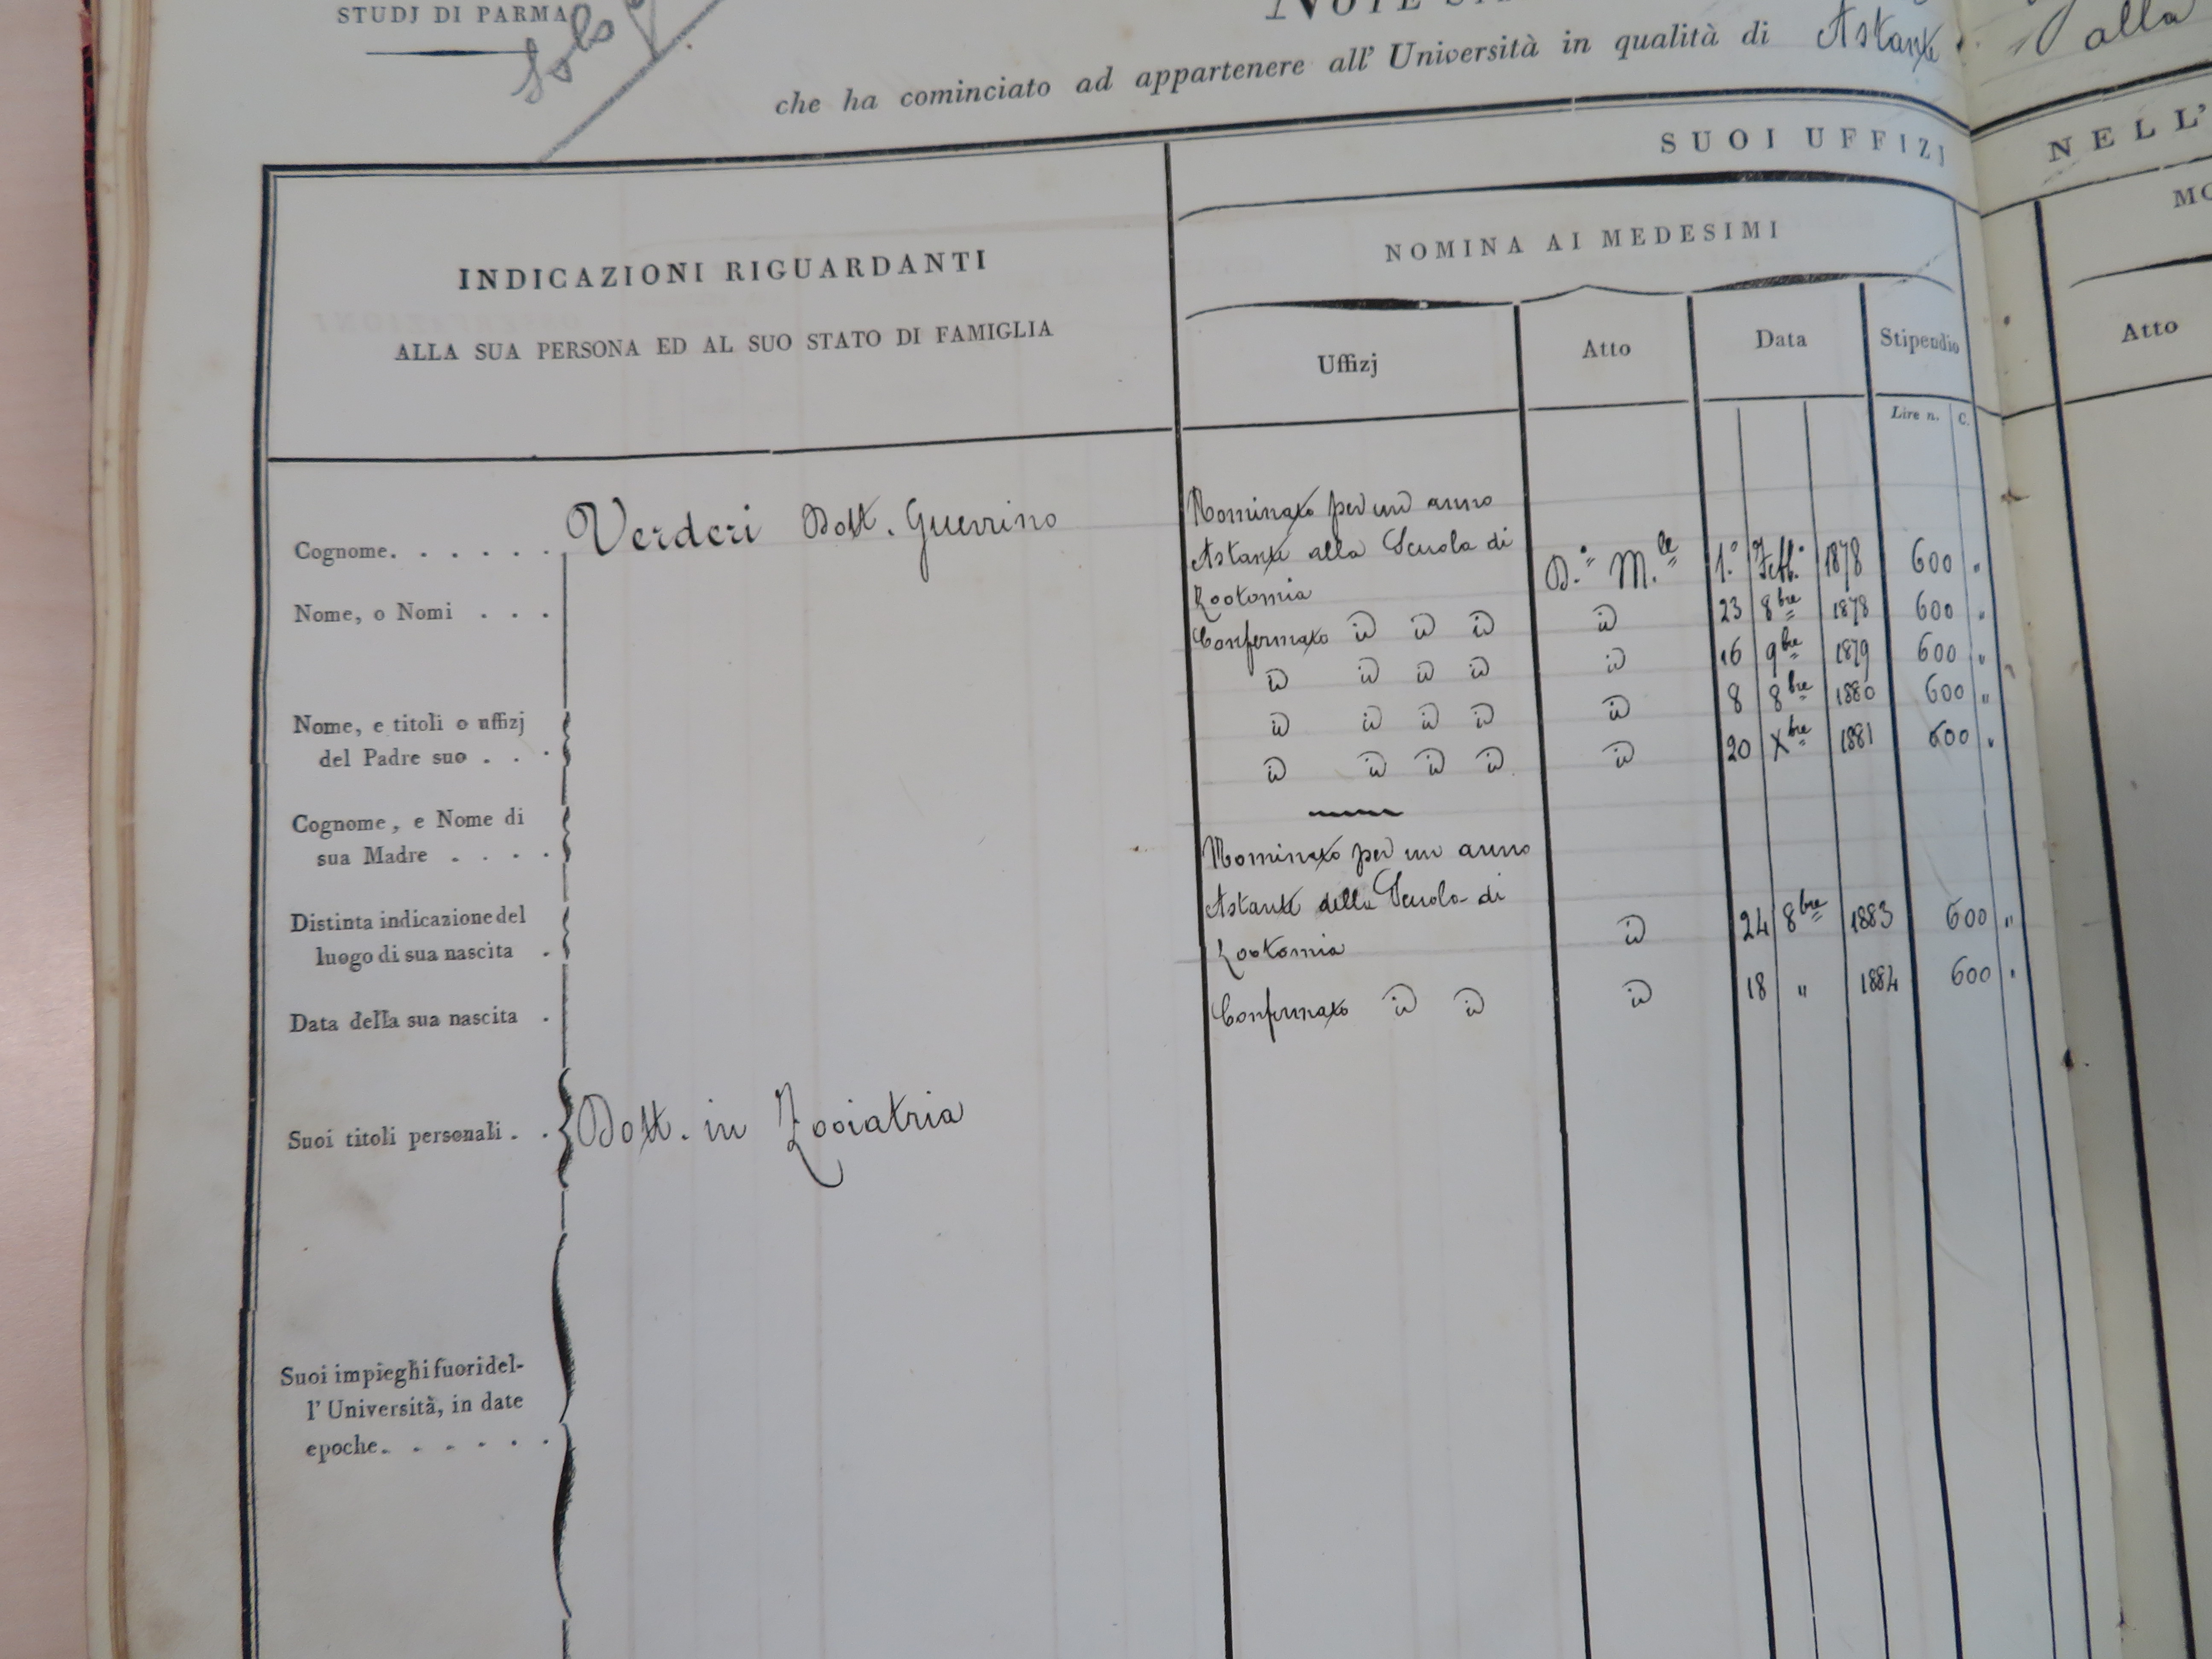 STUDJ DI PARMA
che ha cominciato ad appartenere all' Università in qualità di Astante alla
SUOI UFFIZJ NELL'
INDICAZIONI RIGUARDANTI
ALLA SUA PERSONA ED AL SUO STATO DI FAMIGLIA
NOMINA AI MEDESIMI
Uffizj Atto Data Stipendio Atto
Lire n. C.
Cognome. . . . . . Verderi Dott. Guerrino
Nome, o Nomi . . .
Nome, e titoli o uffizj
del Padre suo . . .
Cognome, e Nome di
sua Madre . . . .
Distinta indicazione del
luogo di sua nascita .
Data della sua nascita .
Suoi titoli personali . . Dott. in Zooiatria
Suoi impieghi fuori del-
l' Università, in date
epoche. . . . . .
Nominato per un anno
Astante alla Scuola di
Zootomia D.º M.le 1.º Febb. 1878 600 "
Confermato id id id id 23 8bre 1878 600 "
id id id id id 16 9bre 1879 600 "
id id id id id 8 8bre 1880 600 "
id id id id id 20 Xbre 1881 600 "
Nominato per un anno
Astante della Scuola di
Zootomia id 24 8bre 1883 600 "
Confermato id id id 18 " 1884 600 "